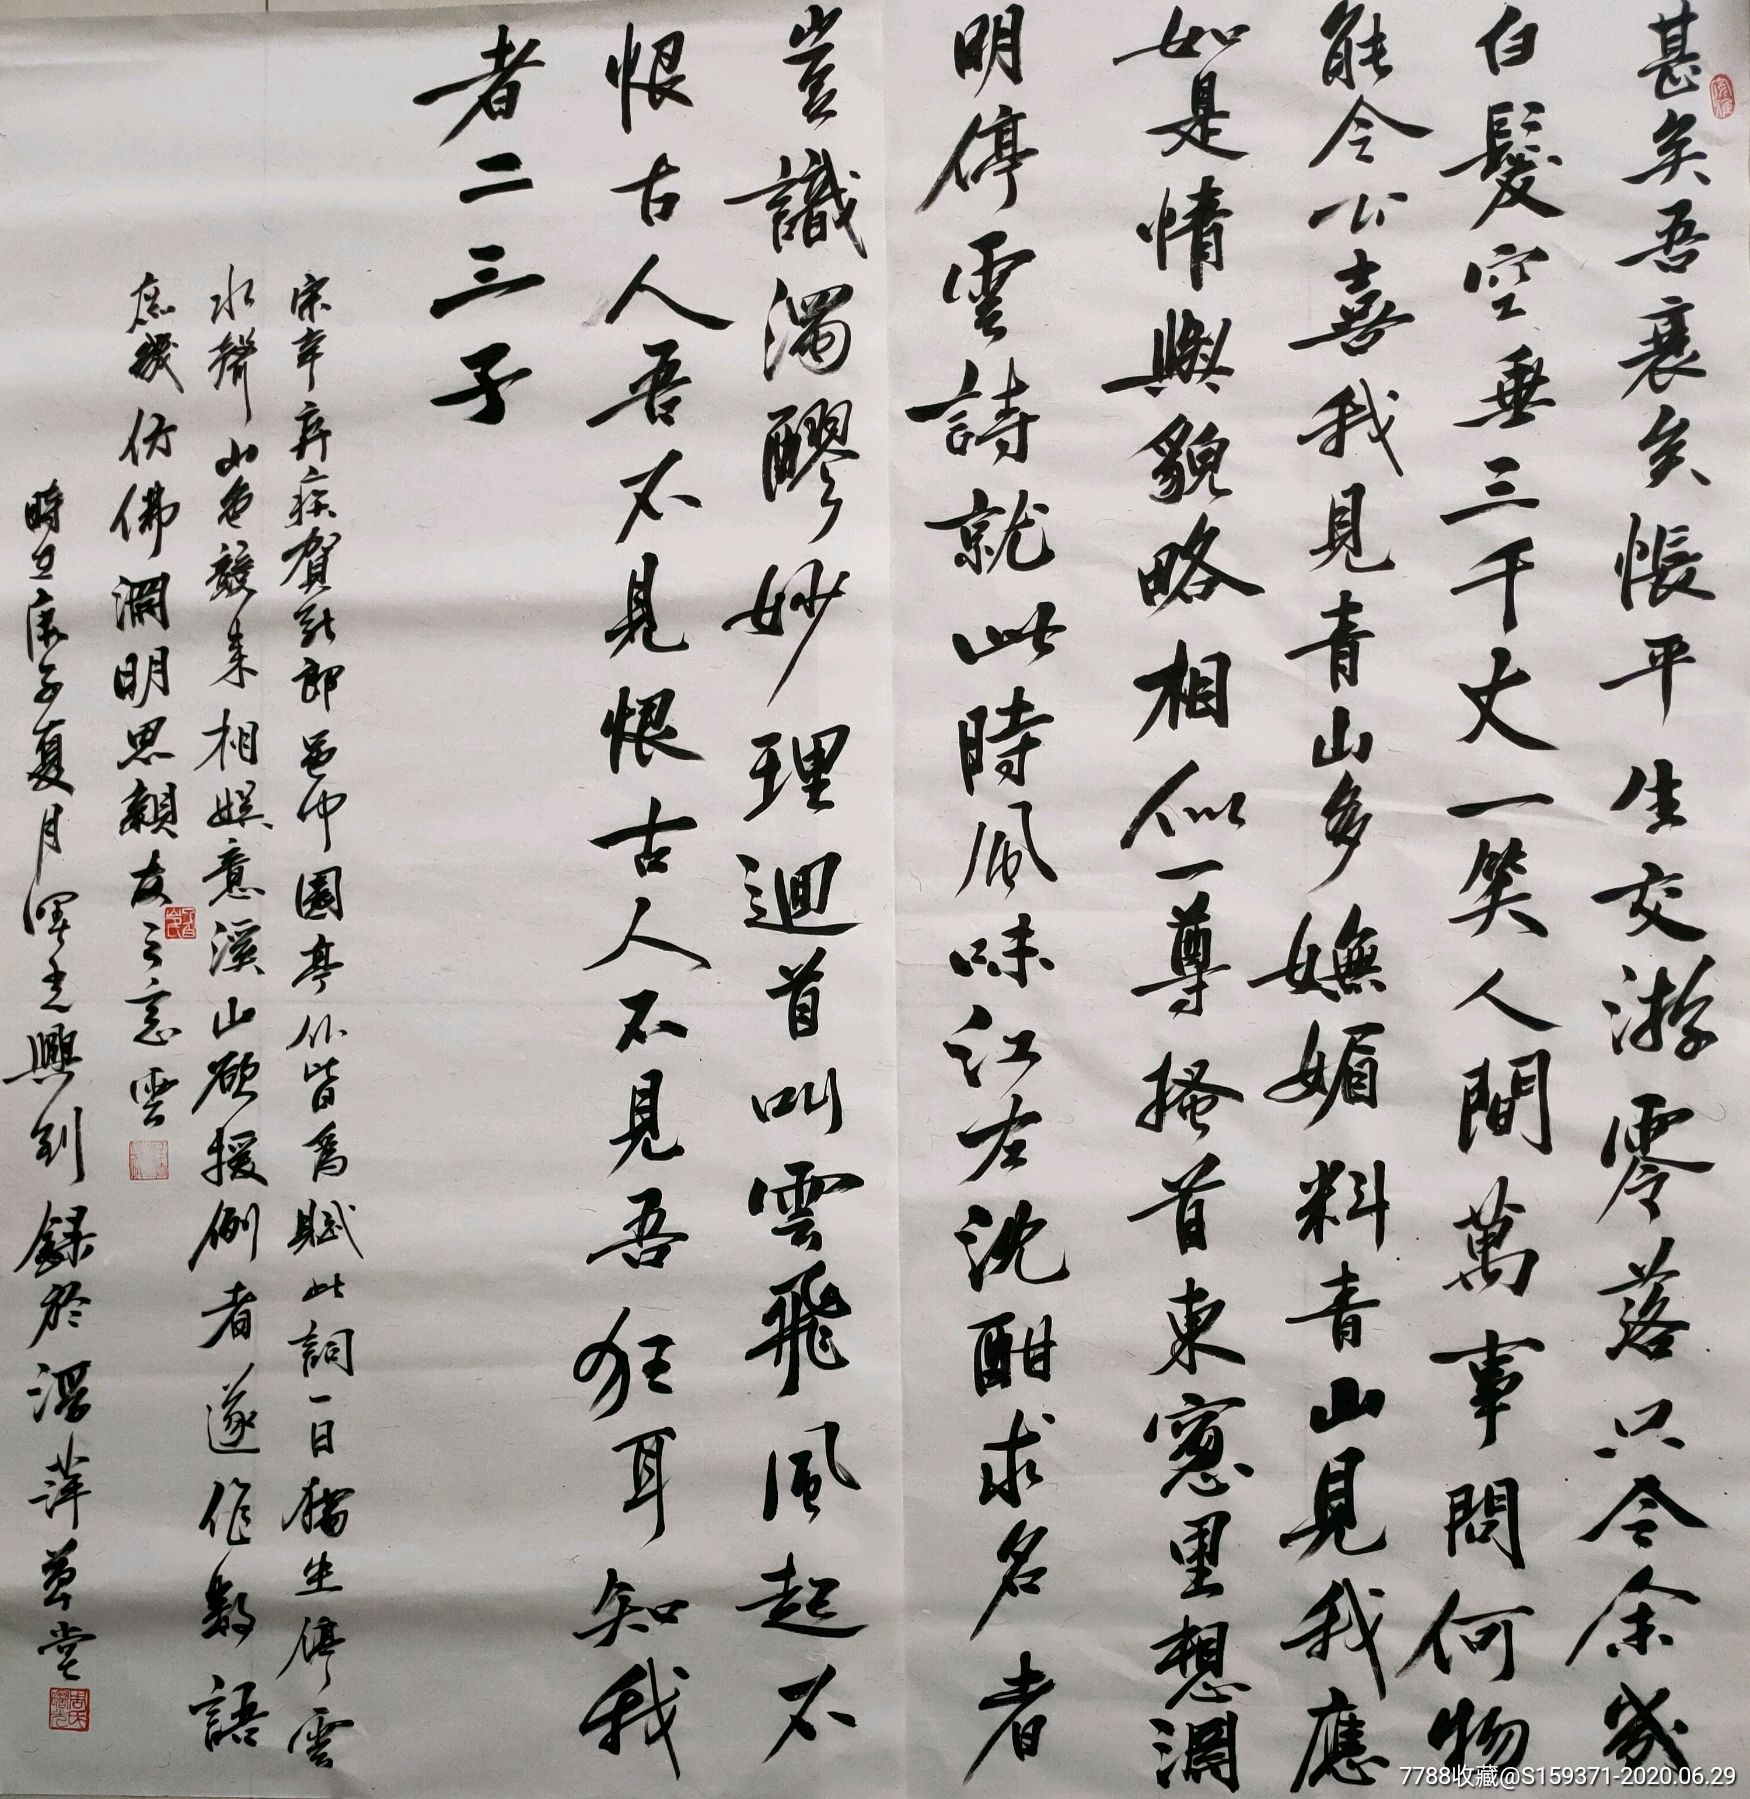 甚矣吾衰矣悵平生交游零落只今余幾
白髮空垂三千丈一笑人間萬事問何物
能令公喜我見青山多嫵媚料青山見我應
如是情與貌略相似一尊搔首東窻里想淵
明停雲詩就此時風味江左沈酣求名者
豈識濁醪妙理迴首叫雲飛風起不
恨古人吾不見恨古人不見吾狂耳知我
者二三子
宋辛弃疾賀新郎邑中園亭仆皆為賦此詞一日獨坐停雲
水聲山色競来相娛意溪山欲援例者遂作數語
庶幾仿佛淵明思親友之意雲
時在庚子夏月澤光興到錄於萍堂
7788收藏@S159371-2020.06.29